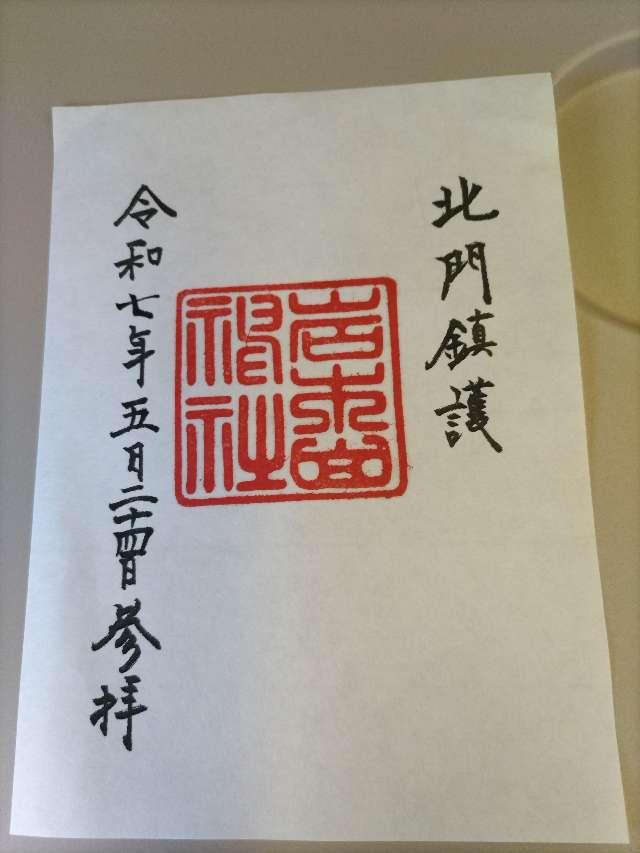 北門鎮護
岩木山
神社
令和七年五月二十四日参拝